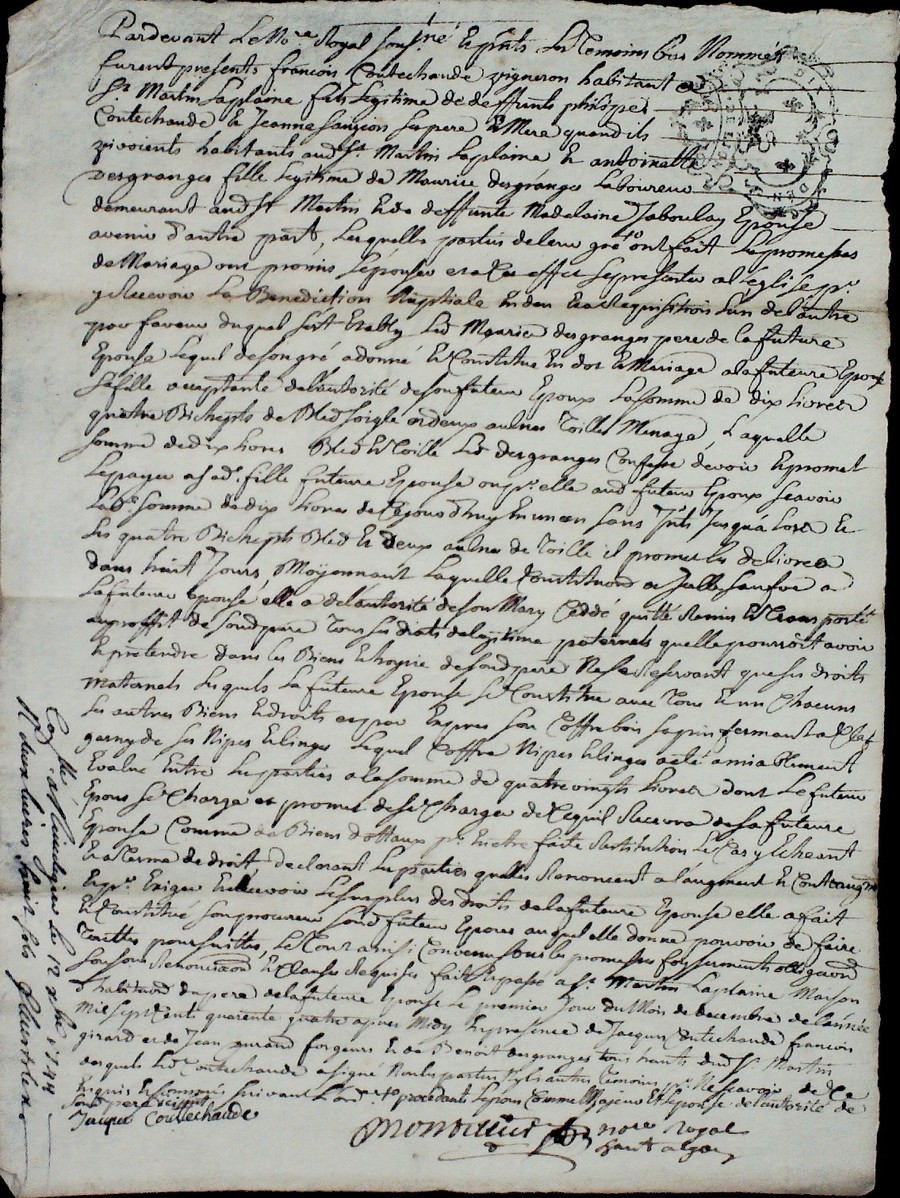 Pardevant Le No.re Royal sous.né Et p.nts Les Temoins bas Nommés
furent presents francois Coutechaude vigneron habitant
St. Martin Laplaine fils Legitime de deffunts philipe
Coutechaude Et Jeanne Sauzion Ses pere Et Mere quand ils
vivoients habitants aud. St. Martin Laplaine Et antoinette
desgranges fille Legitime de Maurice desgranges Laboureur
demeurant aud. St. Martin Et de deffunte Madelaine Jaboulay Epouse
avenir d'autre part, Lesquelles parties de leur gré ont fait Les promesses
de Mariage ont promis S'epouser et a Cet effet Se presenter a l'église p.r
y Recevoir La Benediction Nuptiale En dieu Et a la Requisition L'un de L'autre
pour faveur duquel S'est Etably Led. Maurice desgranges pere de la future
Epouse Lequel de Son gré a donné Et Constitue En dot Et Mariage a la future Epouse
Sa fille acceptante de l'autorité de Son futeur Epoux La Somme de dix Livres
quatre Bichepts de Bled Soigle et deux aulnes Toilles Menage, Laquelle
Somme de dix Livres Bled Et Toille Led. desgranges Confesse devoir Et promet
Le payer a Sad. fille future Epouse ou p.r elle aud. futeur Epoux Scavoir
Lad. Somme de dix Livres de Cejourd'huy En un an Sans Jnts Jusqu'a Lors Et
Les quatre Bichepts Bled Et deux aulnes de Toille il promet Les delivrer
dans huit Jours, Moÿennant Laquelle Constitution a Jcelle faite a
La future epouse elle a de l'autorité de Son Mary Ceddé quitté Remis Et Transporté
au proffit de Sond. pere Tous Ses droits de legitime paternels quelle pourroit avoir
Et pretendre dans Les Biens Et hoyrie de Sond. pere Ne Se Reservant que Ses droits
Maternels Lesquels La future Epouse Se Constitue avec Tous Et un Chacuns
Ses autres Biens Et droits et par Expres Son Coffre bois Sapin fermant a Clef
garny de Ses Nipes Et linges Lequel Coffre Nipes Et linges a eté amiablement
Evalué Entre Les parties a la Somme de quatre vingts Livres dont Le futeur
Epoux Se Charge et promet de Se Charger de Ce quil Recevra de la future
Epouse Comme de Biens dottaux p.r En etre faite Restitution Le Cas y Echeant
Et a Terme de droit, declarant Les parties quelles Renoncent a l'augment Et Contraugment
Et p.r Exiger Et Recevoir Le Surplus des droits de la future Epouse elle a fait
Et Constitué Son procureur Sond. futeur Epoux auquel elle donne pouvoir de faire
Touttes poursuittes, Le Tout ainsi Convenu Sous les promesses Soy Serments obligation
Soumissions Renonciation Et Clauses Requises fait Et passé a St. Martin Laplaine Maison
d'habitation du pere de la future Epouse Le premier Jour du Mois de decembre de l'année
Mil Sept Cent quarente quatre apres Midy En presence de Jacques Coutechaude francois
girard et de Jean forgeurs Et de Benoit desgranges tous hants dud. St. Martin
desquels Led. Coutechaude a Signé Non Les parties Ny Les autres Temoins p.r Ne Scavoir de Ce
Enquis Et Sommés Suivant L'ord.ce procedant Le pour Comme Majeur Et L'epouse de l'autorité de
Sond. pere
Jaque Coutechaude
not.re Royal
Con.llé a Rivedegier Le 12 xbre 1744
R. deux Livres huit Sols